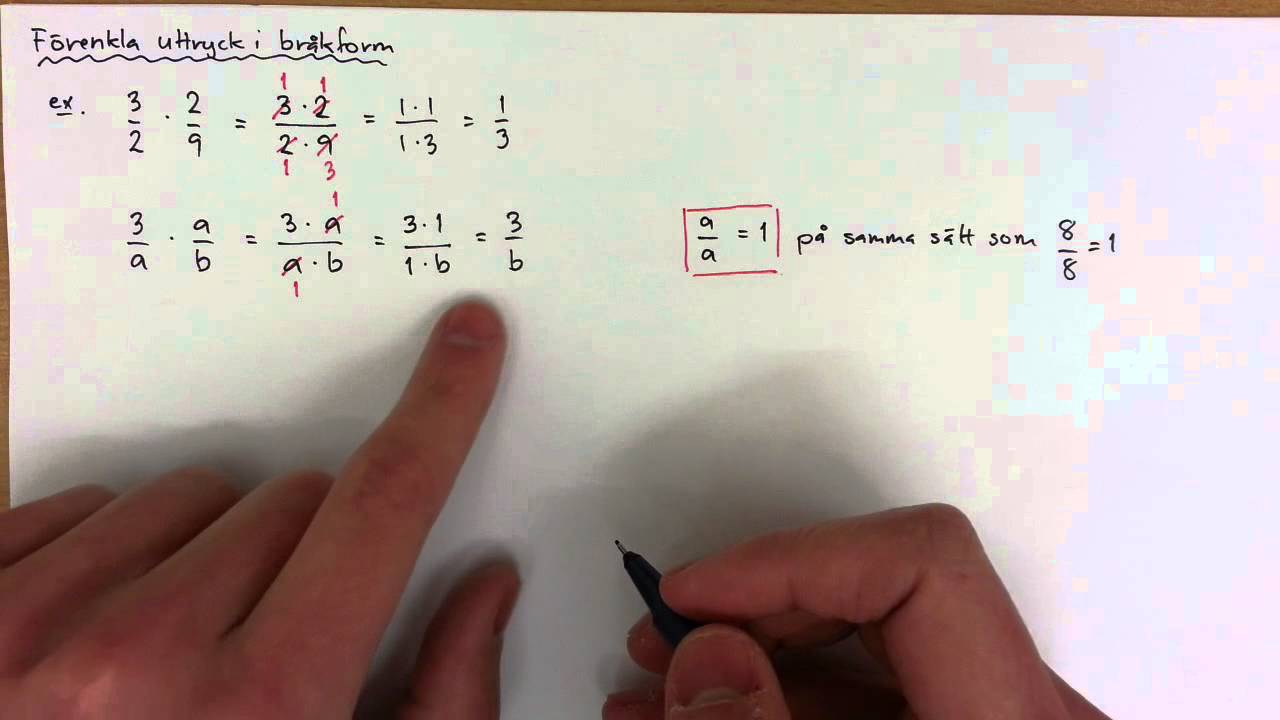 Förenkla uttryck i bråkform
ex. 3/2 · 2/9 = 3·2/2·9 = 1·1/1·3 = 1/3
1 1
1 3
3/a · a/b = 3·a/a·b = 3·1/1·b = 3/b
1
1
a/a = 1 på samma sätt som 8/8 = 1